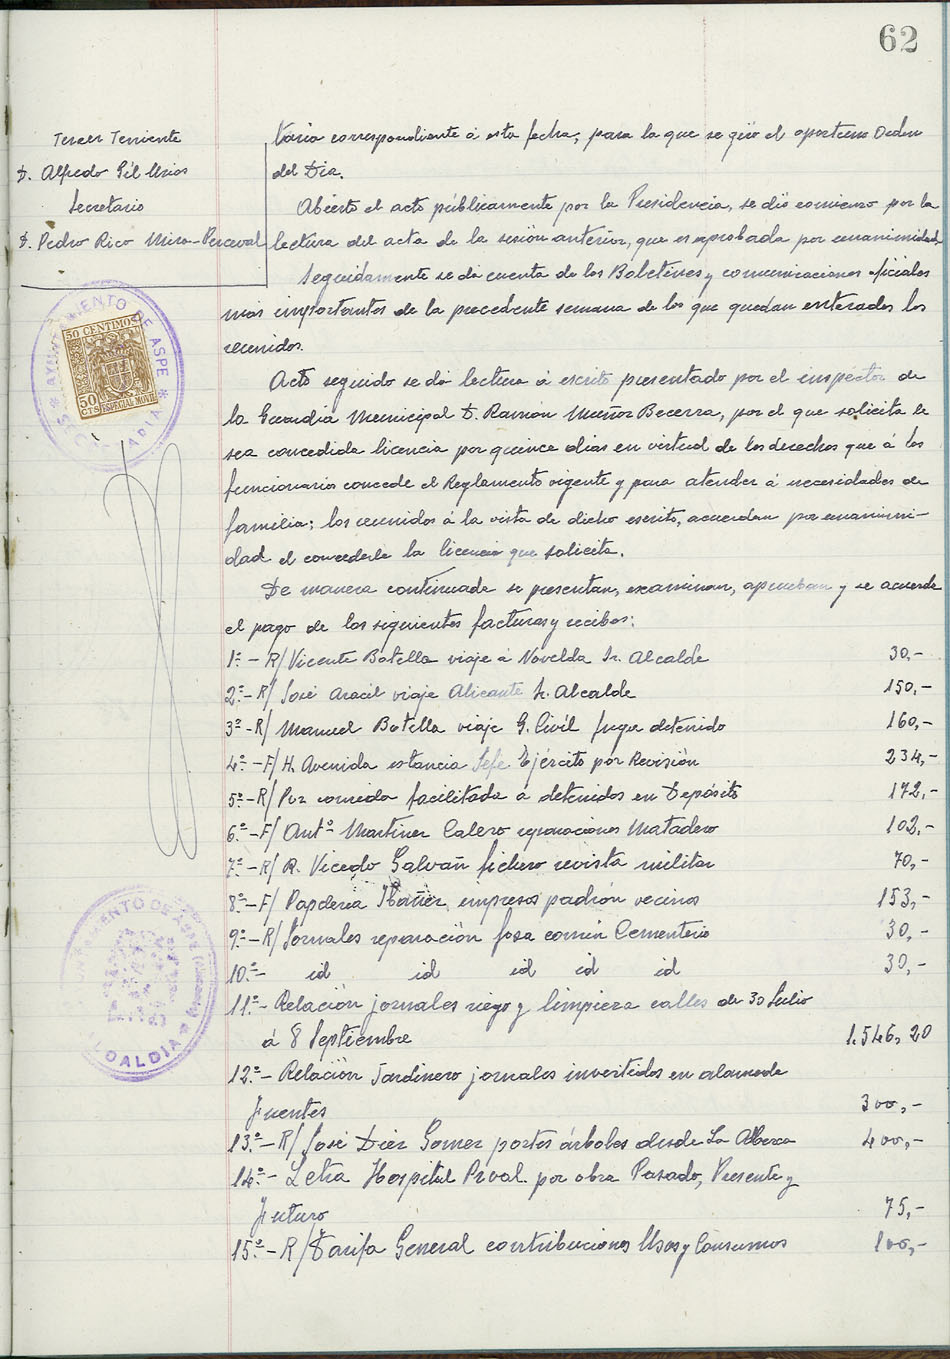 62
Tercer Teniente
D. Alfredo Gil Urios
Secretario
D. Pedro Rico Mira-Perceval
AYUNTAMIENTO DE ASPE
SECRETARIA
50 CENTIMOS
50 CTS ESPECIAL MOVIL
AYUNTAMIENTO DE ASPE
ALCALDIA
taria correspondiente á esta fecha, para la que se giró el oportuno Orden
del Dia.
Abierto el acto públicamente por la Presidencia, se dió comienzo por la
lectura del acta de la sesión anterior, que es aprobada por unanimidad.
Seguidamente se da cuenta de los Boletines y comunicaciones oficiales
mas importantes de la precedente semana de los que quedan enterados los
reunidos.
Acto seguido se da lectura á escrito presentado por el inspector de
la Guardia Municipal D. Ramón Muñoz Becerra, por el que solicita le
sea concedida licencia por quince dias en virtud de los derechos que á los
funcionarios concede el Reglamento vigente y para atender á necesidades de
familia; los reunidos á la vista de dicho escrito, acuerdan por unanimi-
dad el concederle la licencia que solicita.
De manera continuada se presentan, examinan, aprueban y se acuerda
el pago de los siguientes facturas y recibos:
1º.- R/ Vicente Botella viaje á Novelda Sr. Alcalde 30,-
2º.- R/ José Aracil viaje Alicante Sr. Alcalde 150,-
3º.- R/ Manuel Botella viaje G. Civil fuga detenido 160,-
4º.- F/ H. Avenida estancia Jefe Ejército por Revisión 234,-
5º.- R/ Por comida facilitada a detenidos en Depósito 172,-
6º.- F/ Antº Martinez Calero reparaciones Matadero 102,-
7º.- R/ R. Vicedo Galvañ fichero revista militar 70,-
8º.- F/ Papeleria Ibañez impresos padrón vecinos 153,-
9º.- R/ Jornales reparación fosa común Cementerio 30,-
10º.- id id id id id 30,-
11º.- Relación jornales riego y limpieza calles de 30 Julio
á 8 Septiembre 1.546,20
12º.- Relación Jardinero jornales invertidos en alameda
Fuentes 300,-
13º.- R/ José Diez Gomez portes árboles desde La Alberca 400,-
14º.- Letra Hospital Proval. por obra Pasado, Presente y
Futuro 75,-
15º.- R/ Tarifa General contribuciones Usos y Consumos 100,-